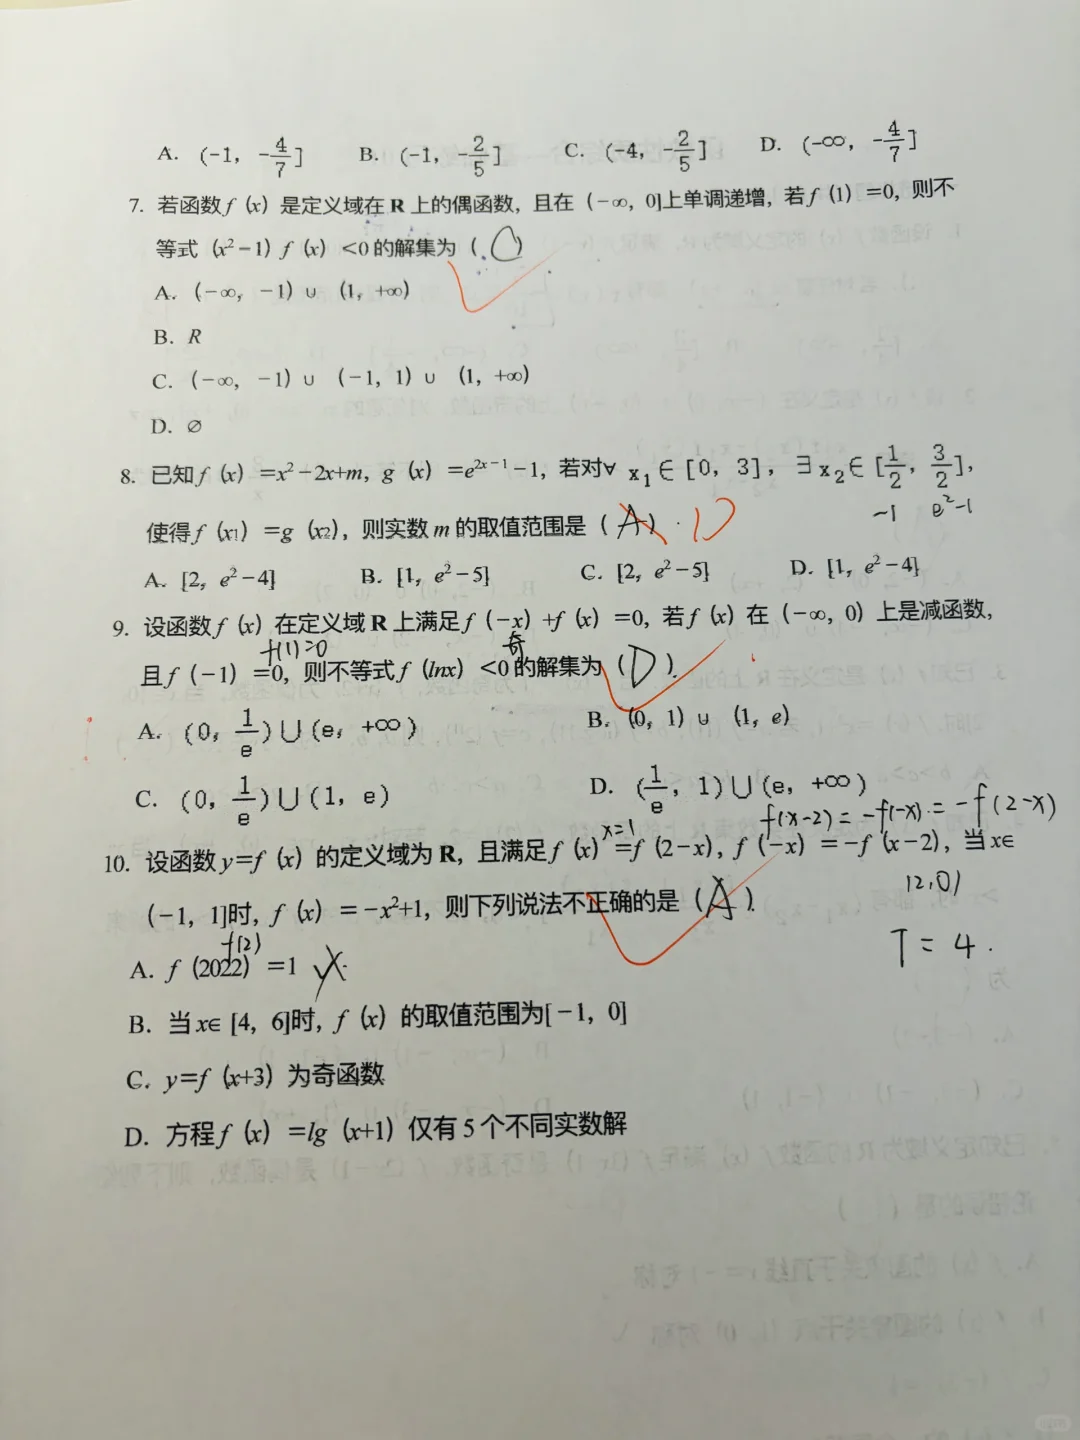 A. (-1, -4/7]    B. (-1, -2/5]    C. (-4, -2/5]    D. (-∞, -4/7]
7. 若函数f (x) 是定义域在 R 上的偶函数，且在 (-∞, 0]上单调递增，若f (1) =0，则不
等式 (x²-1) f (x) <0的解集为 ( C )
A. (-∞, -1) ∪ (1, +∞)
B. R
C. (-∞, -1) ∪ (-1, 1) ∪ (1, +∞)
D. ∅
8. 已知f (x) =x²-2x+m, g (x) =e^{2x-1}-1，若对∀ x₁∈[0, 3], ∃x₂∈[1/2, 3/2],
-1  e²-1
使得f (x₁) =g (x₂)，则实数 m 的取值范围是 ( A ) . D
A. [2, e²-4]    B. [1, e²-5]    C. [2, e²-5]    D. [1, e²-4]
9. 设函数f (x) 在定义域 R 上满足f (-x) +f (x) =0，若f (x) 在 (-∞, 0) 上是减函数，
f(1)=0  奇
且f (-1) =0，则不等式f (lnx) <0的解集为 ( D ).
A. (0, 1/e)∪(e, +∞)    B. (0, 1) ∪ (1, e)
C. (0, 1/e)∪(1, e)    D. (1/e, 1)∪(e, +∞)
x=1  f(x-2)=-f(-x).=-f(2-x)
10. 设函数y=f (x) 的定义域为 R，且满足f (x) =f (2-x), f (-x) =-f (x-2)，当x∈
(2,0)
(-1, 1]时, f (x) =-x²+1，则下列说法不正确的是 ( A ).
T=4.
f(2)
A. f (2022) =1
B. 当x∈ [4, 6]时, f (x) 的取值范围为[-1, 0]
C. y=f (x+3) 为奇函数
D. 方程f (x) =lg (x+1) 仅有 5 个不同实数解